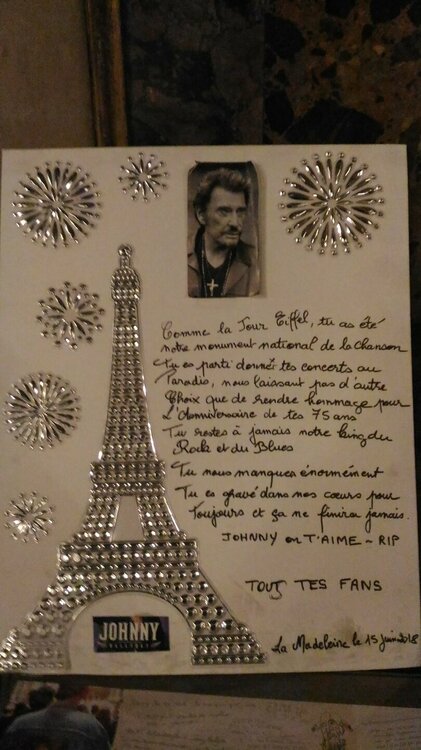 Comme la Tour Eiffel, tu as été
notre monument national de la chanson
Tu es parti donner tes concerts au
Paradis, nous laissant pas d'autre
Choix que de rendre hommage pour
L'Anniversaire de tes 75 ans
Tu restes à jamais notre king du
Rock et du Blues
Tu nous manques énormément
Tu es gravé dans nos cœurs pour
Toujours et ça ne finira jamais.
JOHNNY on T'AIME ~ RIP
TOUS TES FANS
JOHNNY
HALLYDAY
La Madeleine le 15 juin 2018